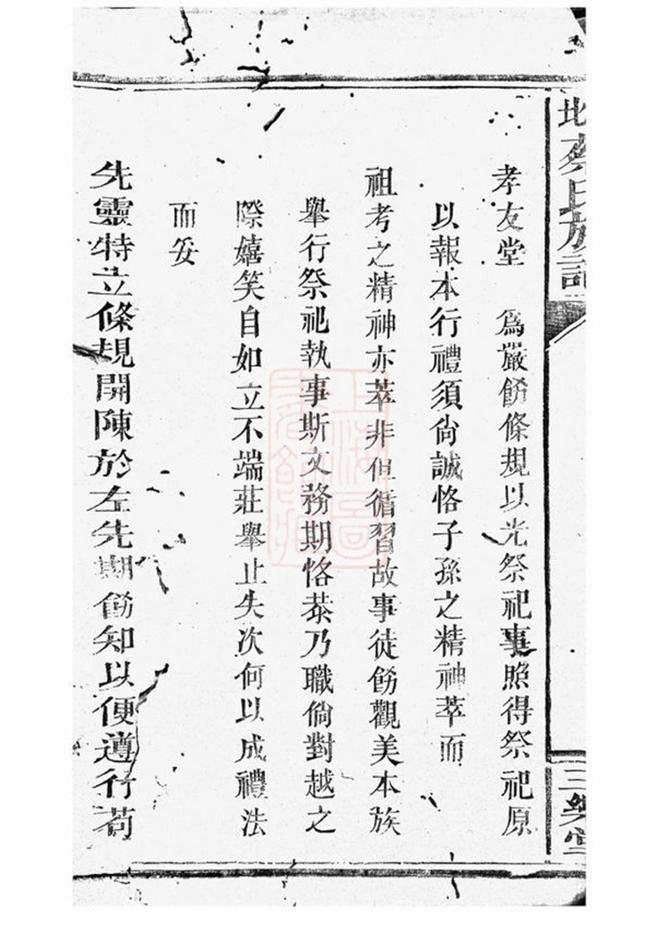 蔡氏族譜
三樂堂
孝友堂　爲嚴飭條規以光祭祀事照得祭祀原
以報本行禮須尙誠恪子孫之精神萃而
祖考之精神亦萃非但循習故事徒飭觀美本族
舉行祭祀執事斯文務期恪恭乃職倘對越之
際嬉笑自如立不端莊舉止失次何以成禮法
而妥
先靈特立條規開陳於左先期飭知以便遵行茍
上海圖